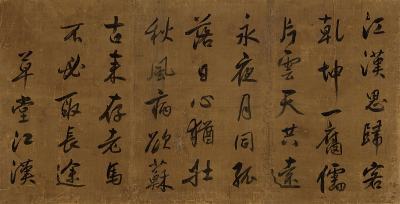 江漢思歸客
乾坤一腐儒
片雲天共遠
永夜月同孤
落日心猶壯
秋風病欲蘇
古來存老馬
不必取長途
草堂江漢